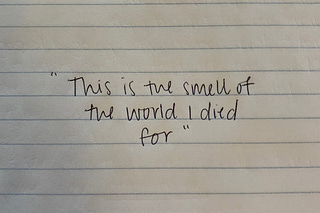 "This is the smell of
the world I died
for"